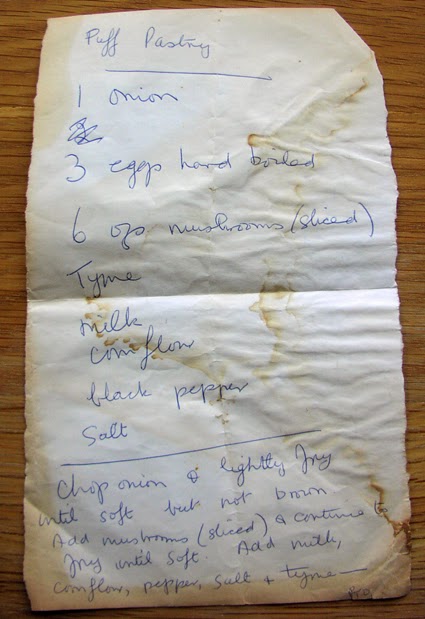 Puff Pastry
1 onion
3 eggs hard boiled
6 ozs mushrooms (sliced)
Tyme
milk
cornflour
black pepper
Salt
Chop onion & lightly fry
until soft but not brown
Add mustrooms (sliced) & continue to
fry until soft. Add milk,
cornflour, pepper, salt + tyme
PTO